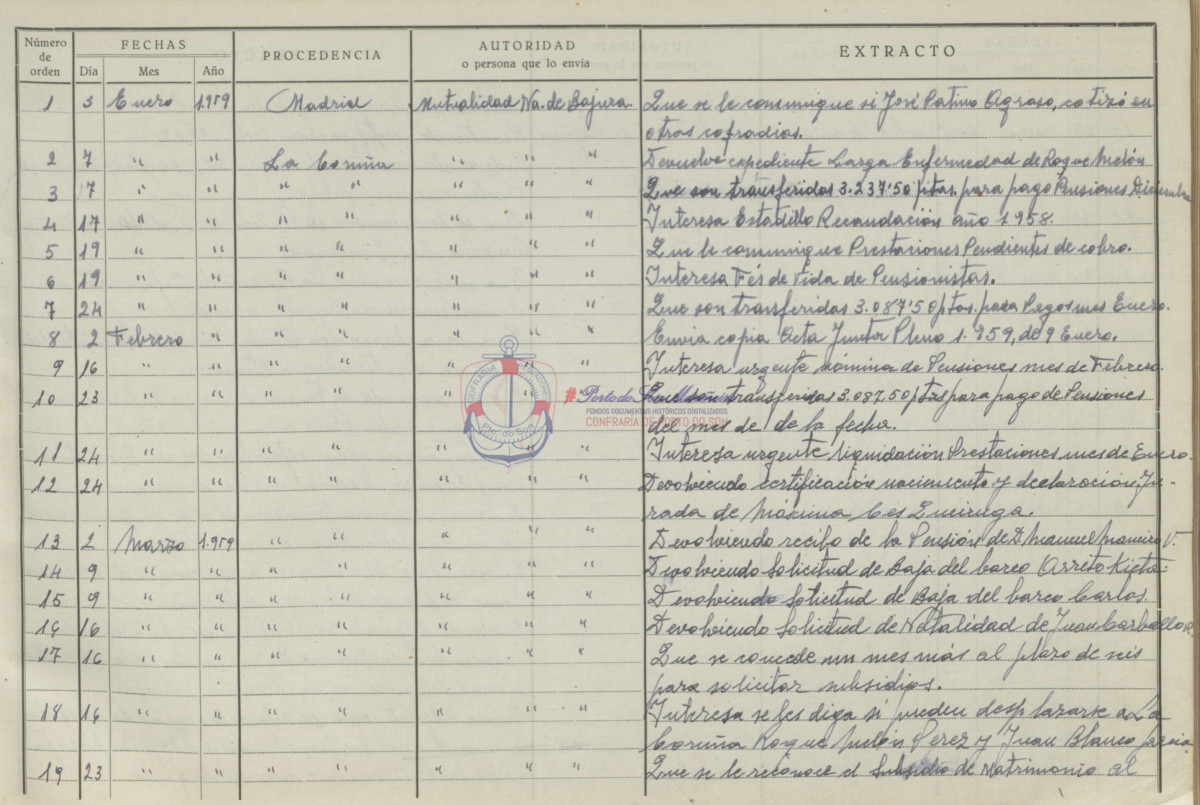 Número de orden FECHAS PROCEDENCIA AUTORIDAD o persona que lo envía EXTRACTO
Día Mes Año
1 3 Enero 1.959 Madrid Mutualidad Na. de Bajura. Que se le comunique si José Patiño Agraso, cotizó en
otras cofradias.
2 7 " " La Coruña " " " Devuelve expediente Larga Enfermedad de Roque Melón
3 17 " " " " " " " Que son transferidas 3.237'50 ptas. para pago Pensiones Diciembre
4 17 " " " " " " " Interesa Estadillo Recaudación año 1958.
5 19 " " " " " " " Que le comunique Prestaciones Pendientes de cobro.
6 19 " " " " " " " Interesa Fés de Vida de Pensionistas.
7 24 " " " " " " " Que son transferidas 3.087'50 ptas. para Pagos mes Enero.
8 2 Febrero " " " " " " Envia copia Acta Junta Pleno 1.959, de 9 Enero.
9 16 " " " " " " " Interesa urgente nómina de Pensiones mes de Febrero.
10 23 " " " " " " " Que son transferidas 3.087.50 ptas para pago de Pensiones
del mes de de la fecha.
11 24 " " " " " " " Interesa urgente liquidación Prestaciones mes de Enero.
12 24 " " " " " " " Devolviendo certificación nacimiento y declaración Ju-
rada de Máxima Ces Queiruga.
13 2 Marzo 1.959 " " " " " Devolviendo recibo de la Pensión de D Manuel V.
14 9 " " " " " " " Devolviendo Solicitud de Baja del barco
15 9 " " " " " " " Devolviendo Solicitud de Baja del barco Carlos.
16 16 " " " " " " " Devolviendo Solicitud de Natalidad de Juan Carballo R.
17 16 " " " " " " " Que se concede un mes más al plazo de seis
para solicitar subsidios.
18 16 " " " " " " " Interesa se les diga si pueden desplazarse a La
Coruña Roque Melón Perez y Juan Blanco
19 23 " " " " " " " Que se le reconoce el Subsidio de Matrimonio al
COFRADIA
Pto. do Son
#Porto do Son
FONDOS DOCUMENTAIS HISTÓRICOS DIXITALIZADOS
CONFRARÍA DE PORTO DO SON